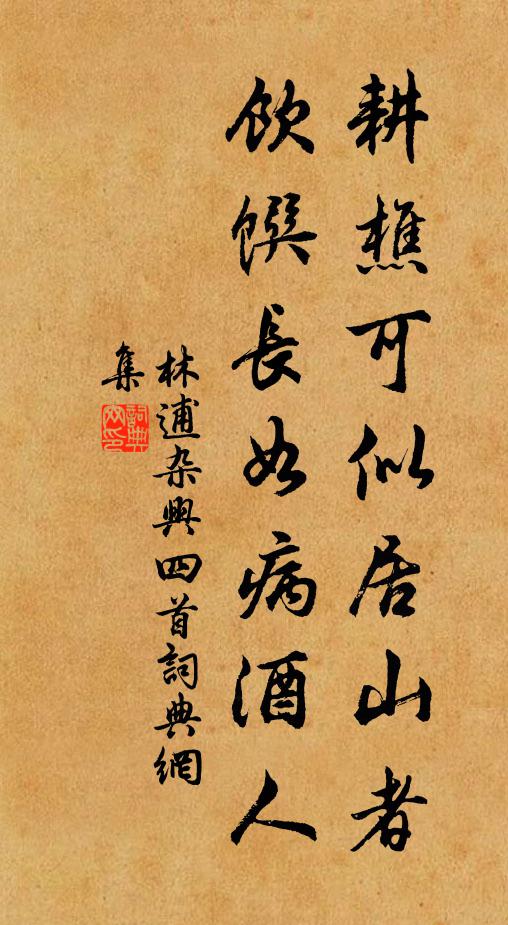 耕樵可似居山者
飲饌長如病酒人
林逋杂興四首詞典網
集
詞典
网印